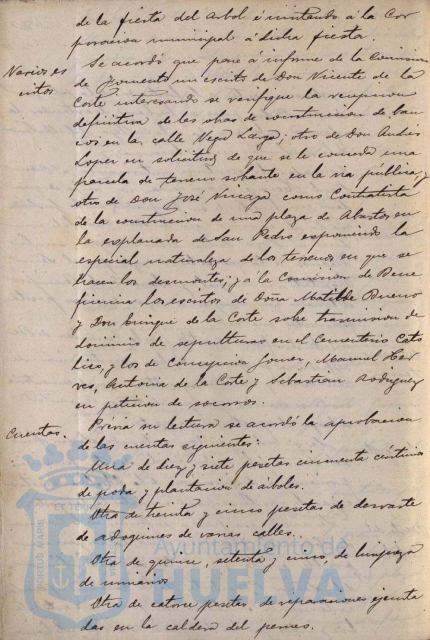 de la fiesta del Arbol é invitando á la Cor
poracion municipal á dicha fiesta.
Varios es
critos
Se acordó que pase á informe de la Comision
de Fomento un escrito de Don Vicente de la
Corte interesando se verifique la recepcion
definitiva de las obras de construccion de ban
cos en la calle Vega Larga; otro de Don Andrés
Lopez en solicitud de que se le conceda una
parcela de terreno sobrante en la via pública, y
otro de Don José Vizcaya como Contratista
de la construccion de una plaza de Abastos en
la esplanada de San Pedro esponiendo la
especial naturaleza de los terrenos en que se
hacen los desmontes; y á la Comision de Bene
ficencia los escritos de Doña Matilde Bueno
y Don Enrique de la Corte sobre trasmision de
dominio de sepulturas en el Cementerio Cató
lico, y los de Concepcion Gomez, Manuel
Antonia de la Corte y Sebastian Rodriguez
en peticion de socorros.
Cuentas.
Prévia su lectura se acordó la aprobacion
de las cuentas siguientes:
Una de diez y siete pesetas cincuenta céntimos
de poda y plantacion de árboles.
Otra de treinta y cinco pesetas de desvaste
de adoquines de varias calles.
Otra de quince, setenta y cinco, de limpieza
de urinarios
Otra de catorce pesetas, de reparaciones ejecuta
das en la caldera del
PORTUS MARIS
Ayuntamiento de
HUELVA